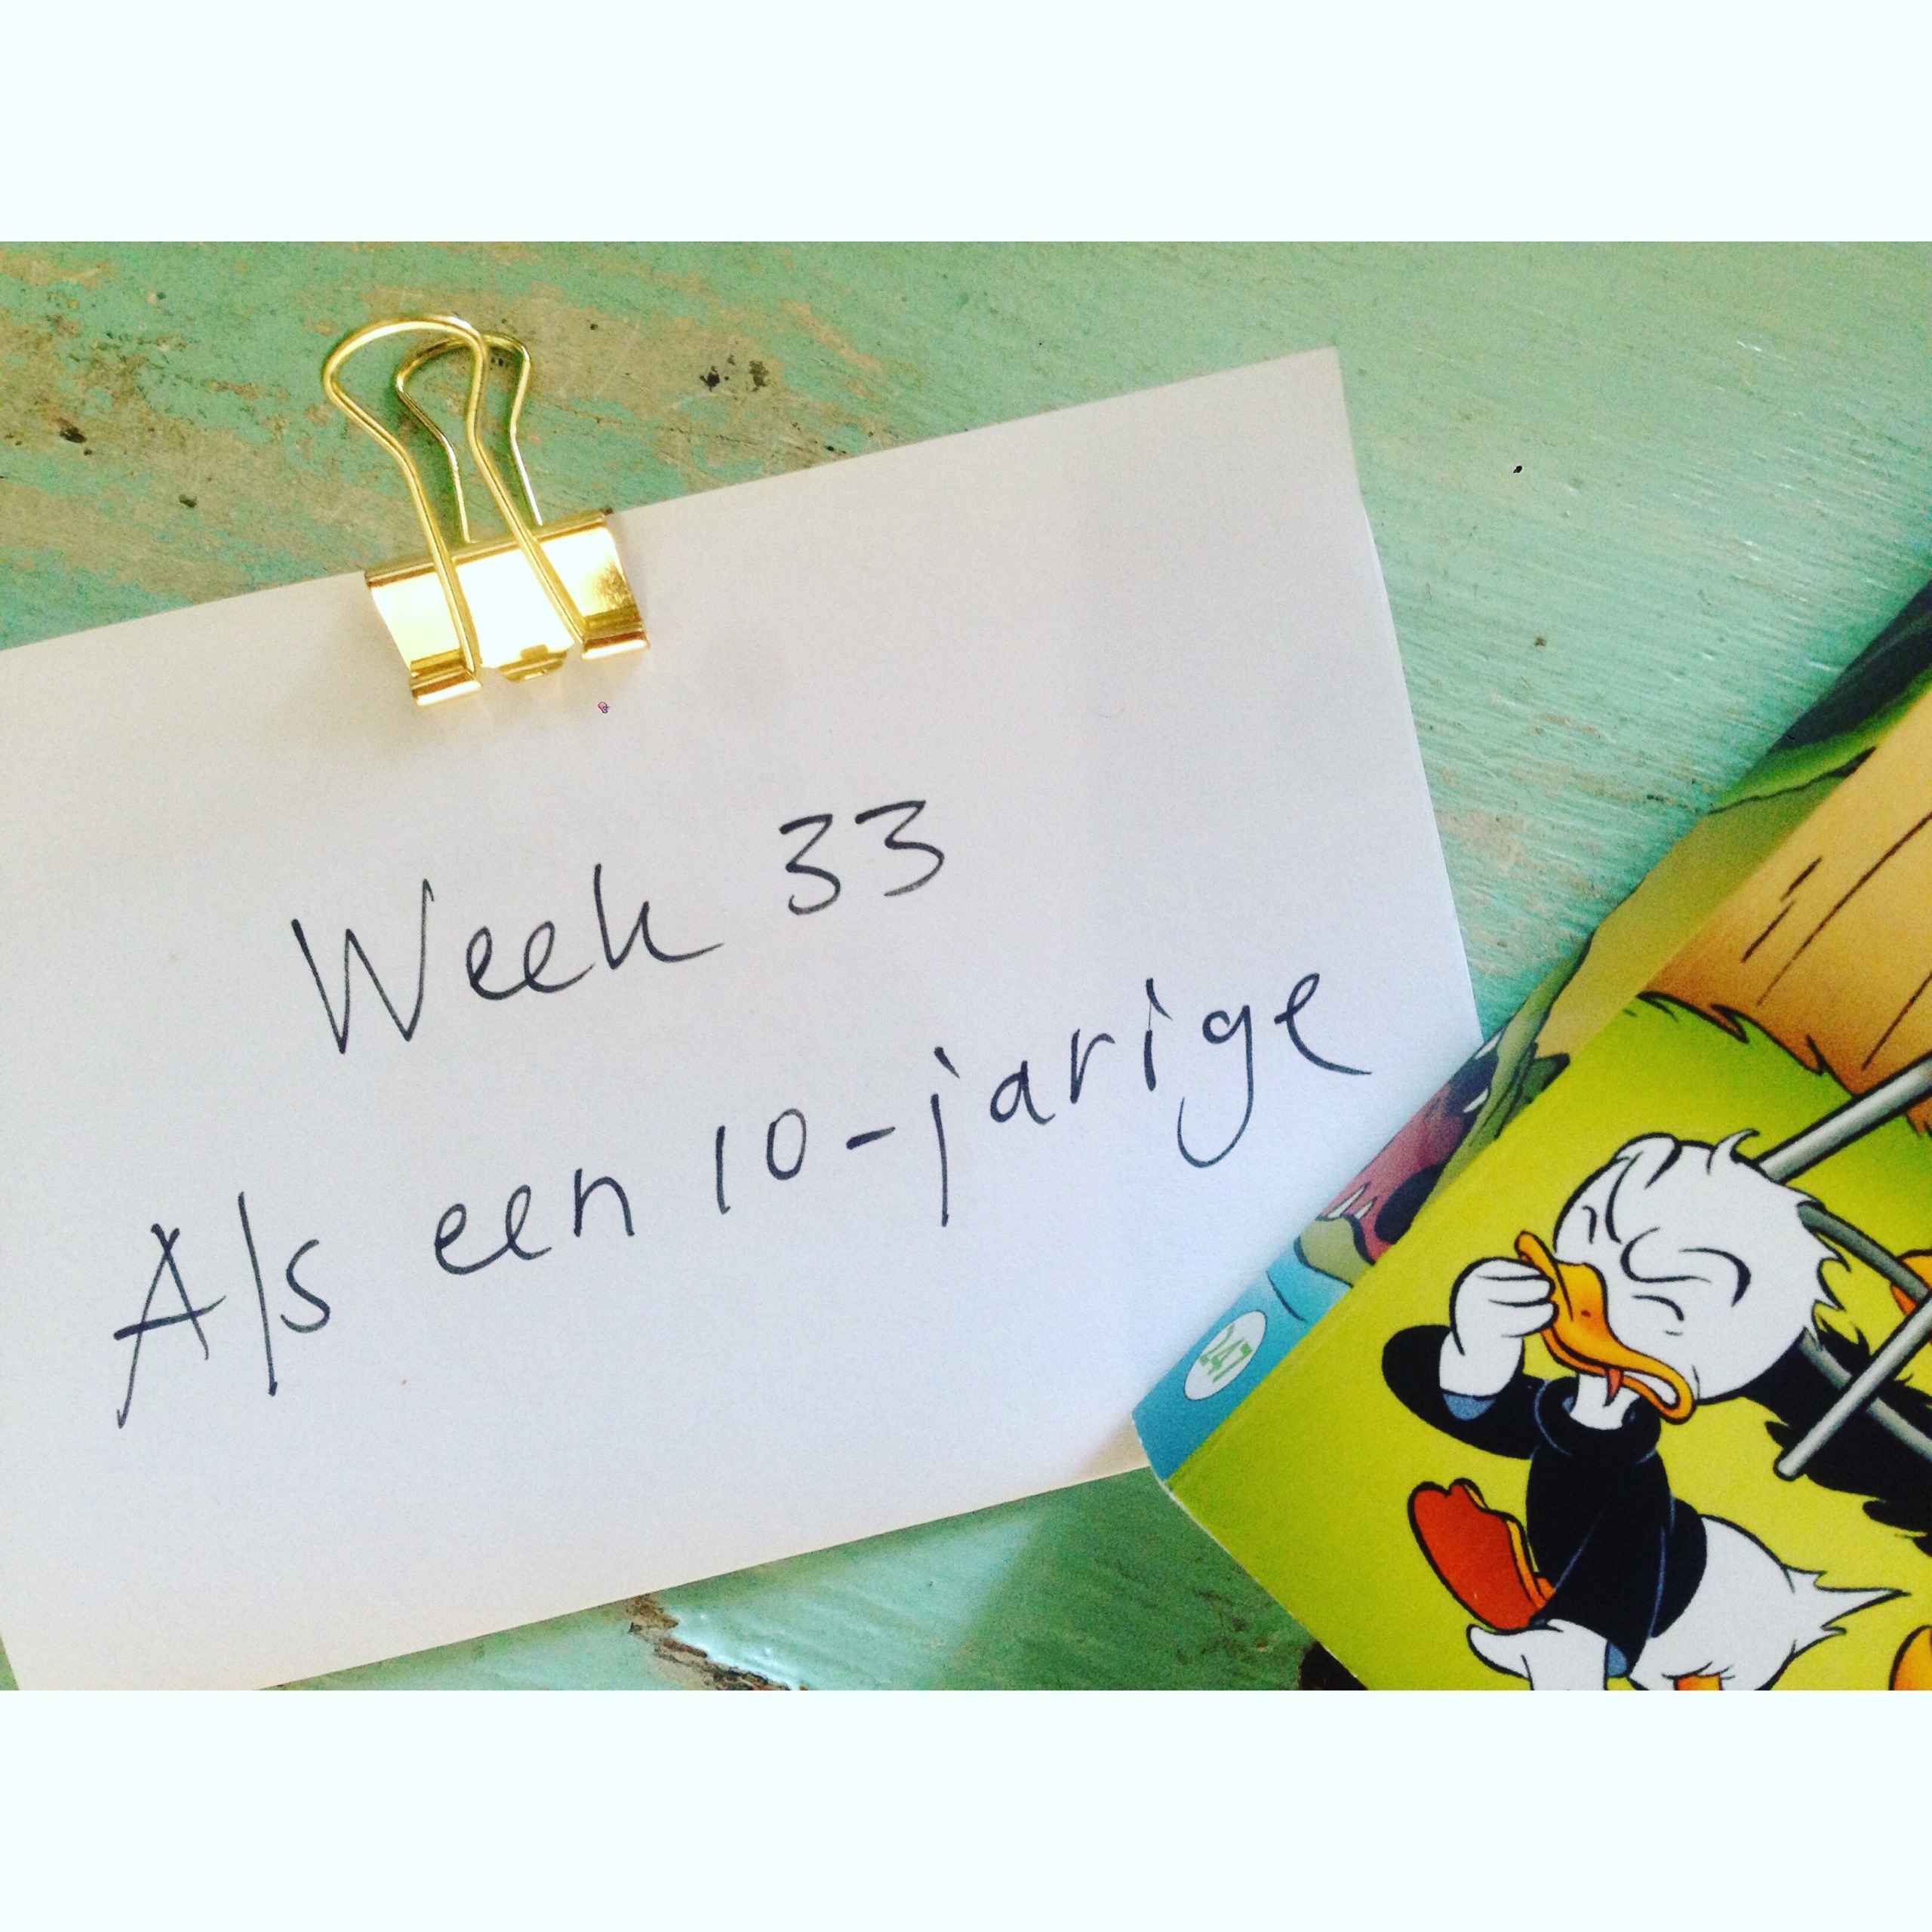 Week 33
Als een 10-jarige
247